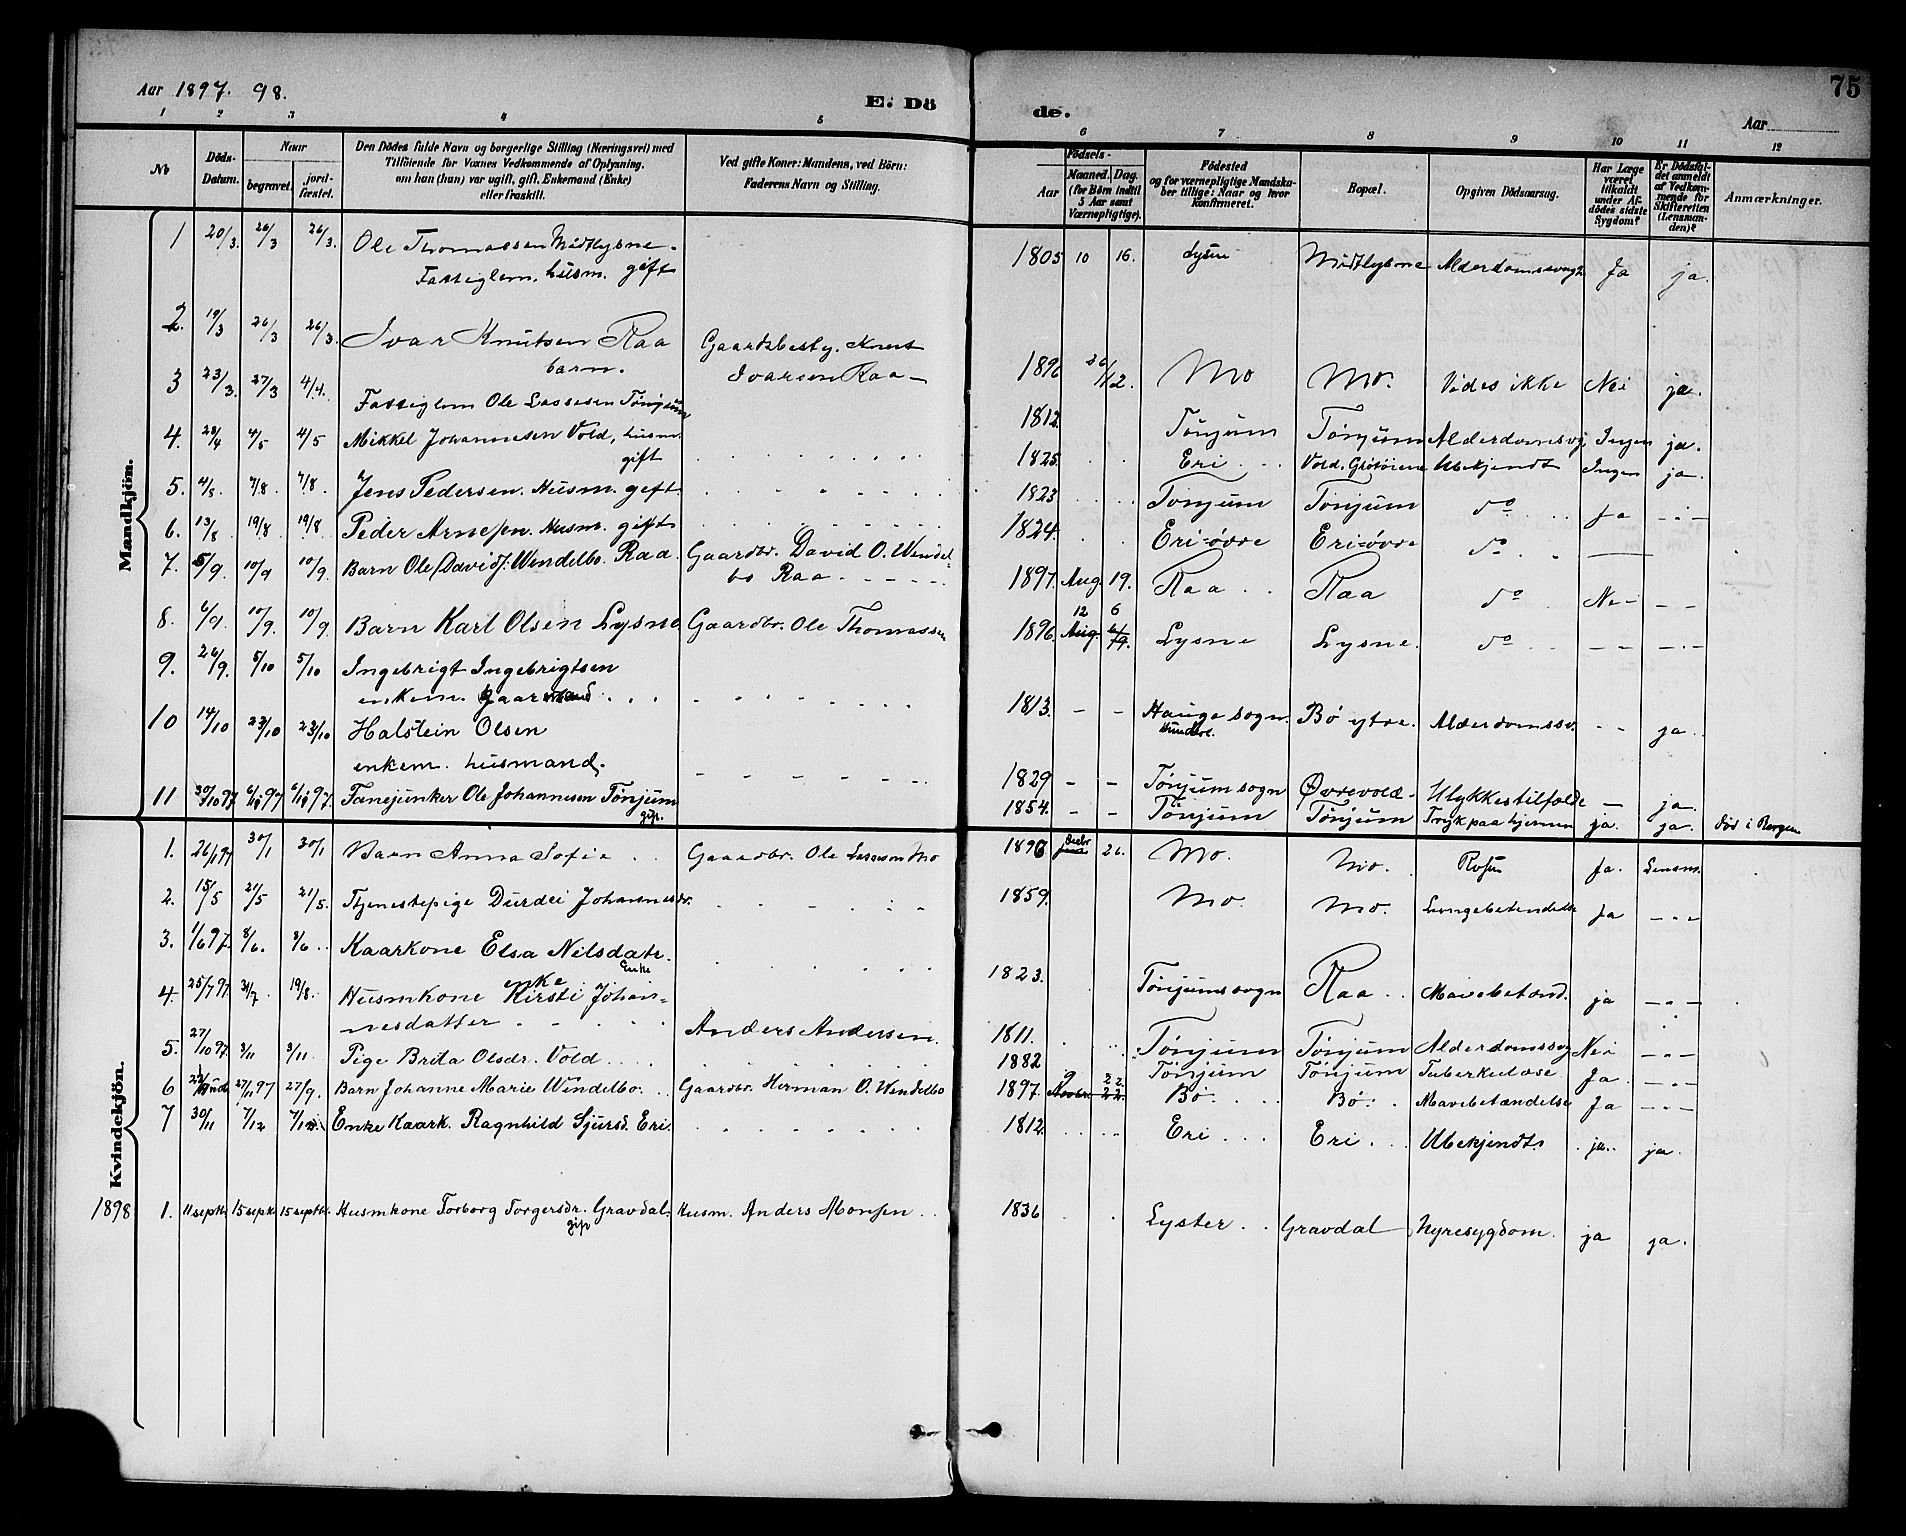 Aar 1897. 98.
E. Dö
de.
Aar
75
1 2 3 4 5 6 7 8 9 10 11 12
No
Döds-Datum.
Naar
begravet.
jord-fæstet.
Den Dödes fulde Navn og borgerlige Stilling (Næringsvei) med
Tilföiende for Voxnes Vedkommende af Oplysning,
om han (hun) var ugift, gift, Enkemand (Enke)
eller fraskilt.
Ved gifte Koner: Mandens, ved Börn:
Faderens Navn og Stilling.
Födsels-
Aar
Maaned. Dag.
(for Börn indtil
5 Aar samt
Værnepligtige).
Födested
og for værnepligtige Mandska-
ber tillige: Naar og hvor
konfirmeret.
Bopæl.
Opgiven Dödsaarsag.
Har Læge
været
tilkaldt
under Af-
dödes sidste
Sygdom?
Er Dödsfal-
det anmeldt
af Vedkom-
mende for
Skifteretten
(Lensman-
den)?
Anmærkninger.
Mandkjön.
1 20/3. 26/3 26/3. Ole Thomassen Midtlysne. 1805 10 16. Lysne Midtlysne Alderdomssvagh Ja ja.
Fattiglem. husm. gift
2. 19/3 26/3 26/3. Ivar Knutsen Raa Gaardsbesty. Knut
barn. Ivarsen Raa 1896 26/12. Mo Mo. Vides ikke Nei ja.
3 23/3. 27/3 4/4. Fattiglem Ole Lassesen Tönjum 1812. Tönjum Tönjum Alderdomssvg. Ingen ja.
4. 28/4 4/5 4/5 Mikkel Johannesen Vold, husm. 1825. Eri Vold. Ubekjendt Ingen ja.
gift
5. 4/8. 7/8. 7/8. Jens Pedersen. Husm. gift. 1823 Tönjum Tönjum do Ja
6. 13/8 19/8 19/8 Peder Arnessen. Husm. gift 1824. Eri övre Eri övre do
7. 5/9. 10/9 10/9. Barn Ole Davids. Wendelbo. Raa. Gaardbr. David O. Wendel
bo Raa 1897. Aug 19. Raa Raa do Nei
8. 6/9. 10/9. 10/9 Barn Karl Olsen Lysne. Gaardbr. Ole Thomassen 1896. 12 6 Aug. Lysne Lysne. do
9. 26/9. 5/10 5/10 Ingebrigt Ingebrigtsen
enkem. 1813. Hauge sogn. Bö ytre. Alderdomssv. ja.
10 14/10 23/10 23/10 Halstein Olsen
enkem. husmand. 1829 Tönjum sogn Övrevold Ulykkestilfælde ja.
11 30/10 97. 6/11 97 6/11 97. Fanejunker Ole Johannesen Tönjum 1854. Tönjum Tönjum Tryk paa hjernen ja. ja. död i Bergen
gift.
Kvindekjön.
1. 26/1 97 30/1 30/1 Barn Anna Sofie Gaardbr. Ole Lassesen Mo 1896 Decbr 26. Mo. Mo. Rosen Ja. Lensm.
2. 15/5 21/5 21/5. Tjenestepige Durdei Johannesdr. 1859. Mo. Mo. Lungebetendelse Ja
3. 1/6 97. 8/6. 8/6 Kaarkone Elsa Nilsdatr. 1823. Tönjumssogn Raa Mavebetænd. ja
Enke
4. 25/7 97. 31/7. 19/8. Husmkone enke Kirsti Johan-
nesdatter Anders Andersen. 1811. Tönjum Tönjum Alderdomssvg Nei
5. 27/10 97. 3/11 3/11. Pige Brita Olsdr. Vold 1882 Tönjum Tönjum Tuberkulose Ja
6 27/11 97 27/9. Barn Johanne Marie Wendelbo. Gaardbr. Herman O. Wendelbo 1897. 9 22. Novbr. 22. Bö. Bö. Mavebetændelse Ja
7 30/11 7/12 7/12. Enke Kaark. Ragnhild Sjursd. Eri. 1812. Eri Eri Ubekjendt. ja. ja.
1898 1. 11 septbr 15 septbr 15 septbr. Husmkone Torborg Torgersdr. Gravdal. Husm. Anders Monsen 1836 Lyster Gravdal Nyresygdom. ja ja.
gift